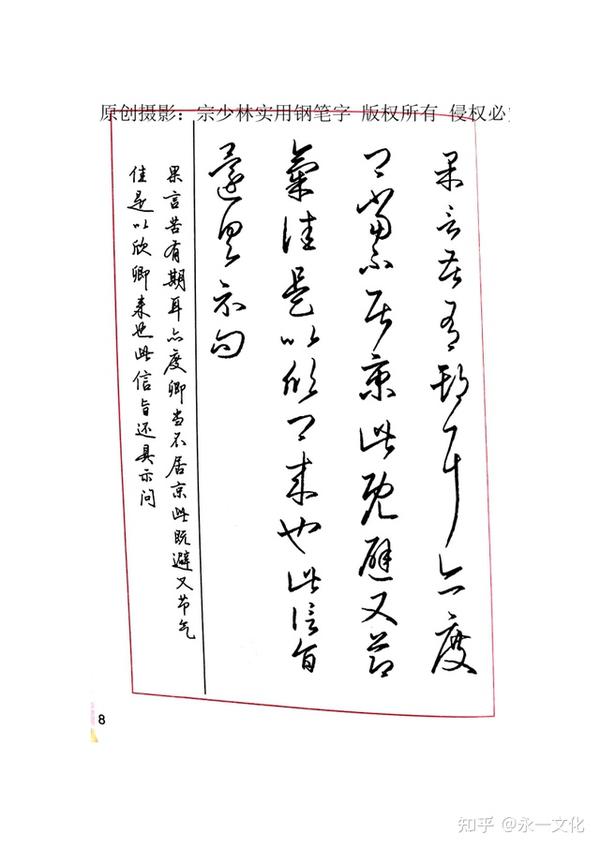 原创摄影：宗少林实用钢笔字 版权所有 侵权必
果言苦有期耳亦度
卿当不居京此既避又节
气佳是以欣卿来也此信旨
还具示问
果言苦有期耳亦度卿当不居京此既避又节气
佳是以欣卿来也此信旨还具示问
8
知乎 @永一文化